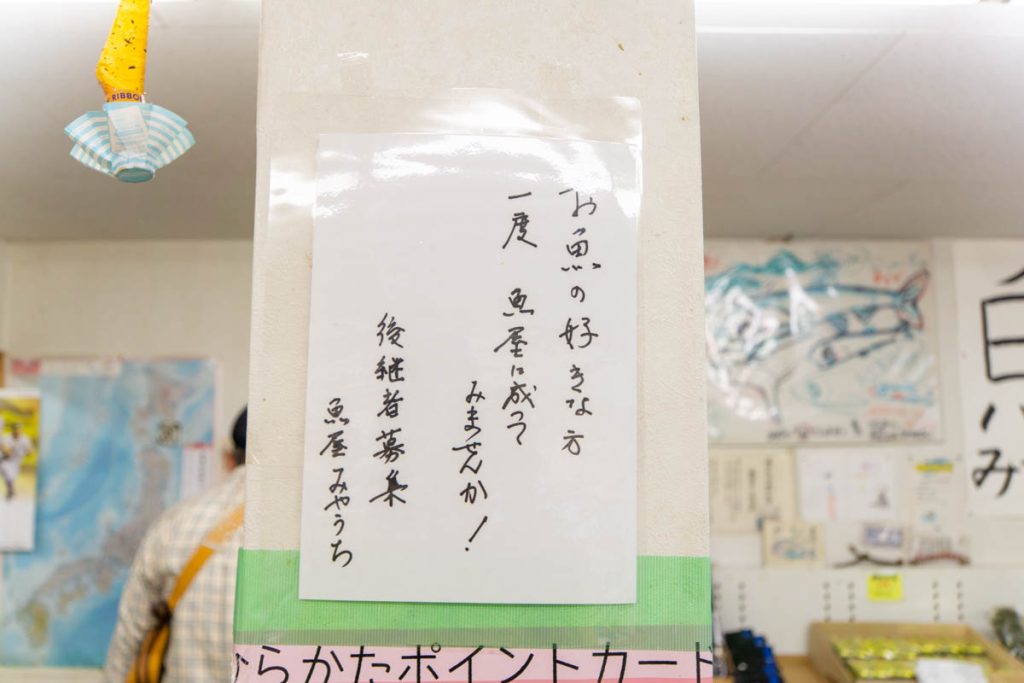 お魚の好きな方
一度 魚屋に成って
みませんか!
後継者募集
魚屋みやうち
ひらかたポイントカード
RIBBO